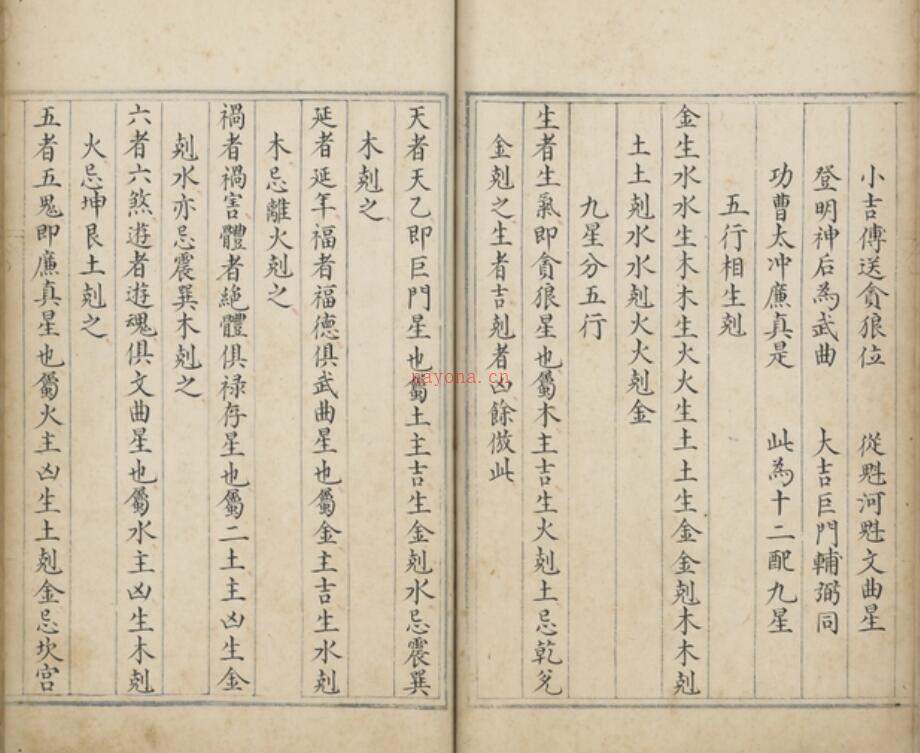 小吉傳送貪狼位　從魁河魁文曲星
登明神后為武曲　大吉巨門輔弼同
功曹太冲廉真是　此為十二配九星
五行相生剋
金生水水生木木生火火生土土生金金剋木木剋
土土剋水水剋火火剋金
九星分五行
生者生氣即貪狼星也屬木主吉生火剋土忌乾兌
金剋之生者吉剋者凶餘倣此
天者天乙即巨門星也屬土主吉生金剋水忌震巽
木剋之
延者延年福者福德俱武曲星也屬金主吉生水剋
木忌離火剋之
禍者禍害體者絶體俱禄存星也屬二土主凶生金
剋水亦忌震巽木剋之
六者六煞遊者遊魂俱文曲星也屬水主凶生木剋
火忌坤艮土剋之
五者五鬼即廉真星也屬火主凶生土剋金忌坎宫
nayona.cn